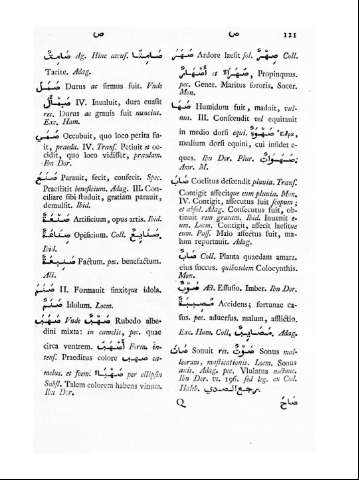 ص ص 121
صَامِتٌ Ag. Hinc accus. صَامِتًا
Tacite. Adag.
Durus ac firmus fuit. Unde
IV. Invaluit, dura evasit
res. Durus ac gravis fuit nuncius.
Exc. Ham.
Occubuit, quo loco perita fu-
it, praeda. IV. Transf. Petiuit et oc-
cidit, quo loco vidisset, praedam.
Ibn Dor.
صَنَعَ Paravit, fecit, confecit. Spec.
Praestitit beneficium. Adag. III. Con-
ciliare sibi studuit, gratiam paravit,
demulsit. Ibid.
صَنْعَةٌ Artificium, opus artis. Ibid.
صِنَاعَةٌ Opificium. Coll. صَنَايِعُ
Ibid.
صَنِيعَةٌ Factum. pec. benefactum.
Ali.
II. Formavit finxitque idola.
صَنَمٌ Idolum. Locm.
Unde صُهْبٌ Rubedo albe-
dini mixta: in camelis, pec. quae
circa ventrem. أَصْهَبُ Form. in-
tens. Praeditus colore صُهْبٌ ca-
melus. et foem. صَهْبَاءُ per ellipsin
Subst. Talem colorem habens vinum.
Ibn Dor.
صَهَرَ Ardore laesit sol. صِهْرٌ Coll.
أَصْهَارٌ et صُهَرَاءُ, Propinquus.
pec. Gener. Maritus sororis, Socer.
Mon.
صَهَا Humidum fuit, maduit, vul-
nus. III. Conscendit vel equitavit
in medio dorsi equi. صَهْوَةٌ
medium dorsi equini, cui insidet e-
ques. Ibn Dor. Plur. صَهَوَاتٌ
Amr. M.
صَابَ Coelitus descendit pluvia. Transf.
Contigit affecitque eum pluvia. Mon.
IV. Contigit, assecutus fuit scopum;
et absol. Adag. Consecutus fuit, ob-
tinuit rem gratam. Ibid. Invenit e-
um. Locm. Contigit, affecit laesitve
eum. Pass. Malo affectus fuit, ma-
lum reportavit. Adag.
صَابٌ Coll. Planta quaedam amara.
eius succus. quibusdam Colocynthis.
Mon.
صَوْبٌ Ab. Effusio, Imber. Ibn Dor.
مُصِيبَةٌ Accidens; fortunae ca-
sus. pec. adversus, malum, afflictio.
Exc. Ham. Coll. مَصَايِبُ. Adag.
صَاتَ Sonuit res. صَوْتٌ Sonus mol-
learum, mussicationis. Locm. Sonus
avis. Adag. pec. Ululatus noctuae.
Ibn Dor. vs. 196. sed leg. ex Cod.
Haleb. يرجع الصدي
Q صَاحَ